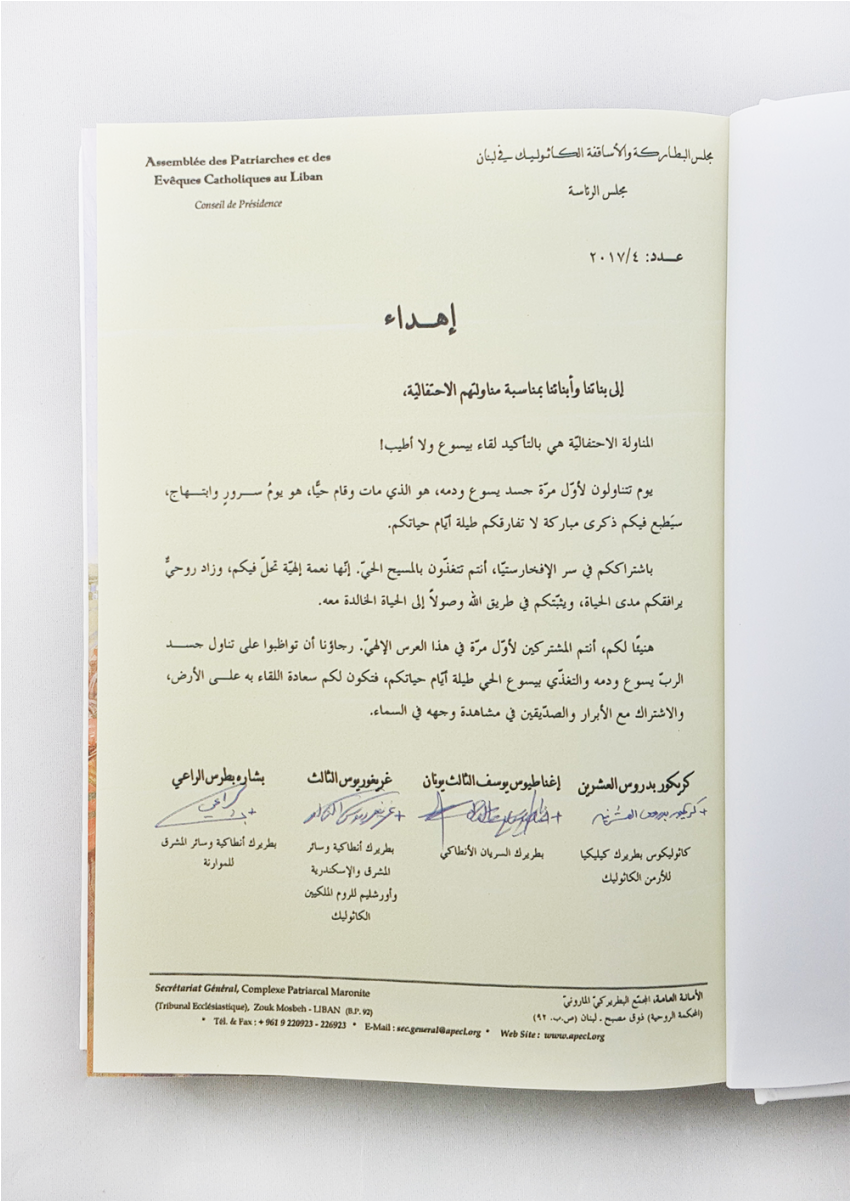 Assemblée des Patriarches et des
Evêques Catholiques au Liban
Conseil de Présidence
مجلس البطاركة والأساقفة الكاثوليك في لبنان
مجلس الرئاسة
عــدد: ٢٠١٧/٤
إهــداء
إلى بناتنا وأبنائنا بمناسبة مناولتهم الاحتفاليّة،
المناولة الاحتفاليّة هي بالتأكيد لقاء بيسوع ولا أطيب!
يوم تتناولون لأوّل مرّة جسد يسوع ودمه، هو الذي مات وقام حيًّا، هو يومُ ســرورٍ وابتــهاج،
سيَطبع فيكم ذكرى مباركة لا تفارقكم طيلة أيّام حياتكم.
باشتراككم في سر الإفخارستيّا، أنتم تتغذّون بالمسيح الحيّ. إنّها نعمة إلهيّة تحلّ فيكم، وزاد روحيٌّ
يرافقكم مدى الحياة، ويثبّتكم في طريق الله وصولاً إلى الحياة الخالدة معه.
هنيئًا لكم، أنتم المشتركين لأوّل مرّة في هذا العرس الإلهيّ. رجاؤنا أن تواظبوا على تناول جســد
الربّ يسوع ودمه والتغذّي بيسوع الحي طيلة أيّام حياتكم، فتكون لكم سعادة اللقاء به علــى الأرض،
والاشتراك مع الأبرار والصدّيقين في مشاهدة وجهه في السماء.
كريكور بدروس العشرين
+ كريكور بدروس العشرين
كاثوليكوس بطريرك كيليكيا
للأرمن الكاثوليك
إغناطيوس يوسف الثالث يونان
بطريرك السريان الأنطاكي
غريغوريوس الثالث
+ غريغوريوس الثالث
بطريرك أنطاكية وسائر
المشرق والإسكندرية
وأورشليم للروم الملكيين
الكاثوليك
بشاره بطرس الراعي
بطريرك أنطاكية وسائر المشرق
للموارنة
Secrétariat Général, Complexe Patriarcal Maronite
(Tribunal Ecclésiastique), Zouk Mosbeh - LIBAN (B.P. 92)
• Tél. & Fax : + 961 9 220923 - 226923 • E-Mail : sec.general@apecl.org • Web Site : www.apecl.org
الأمانة العامة، المجمّع البطريركيّ المارونيّ
(المحكمة الروحية) ذوق مصبح . لبنان (ص.ب. ٩٢)